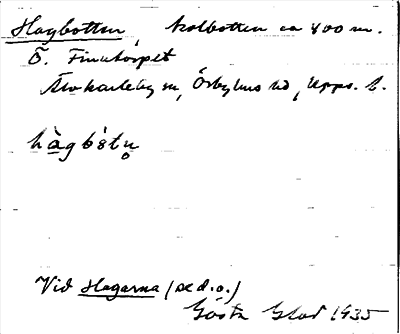 Hagbotten, kolbotten ca 400 m.
Ö. Finntorpet
Älvkarleby sn, Örbyhus hd, Upps. l.
hàgbɷ́tņ
Vid Hagarna (se d.o.)
Gösta 1935